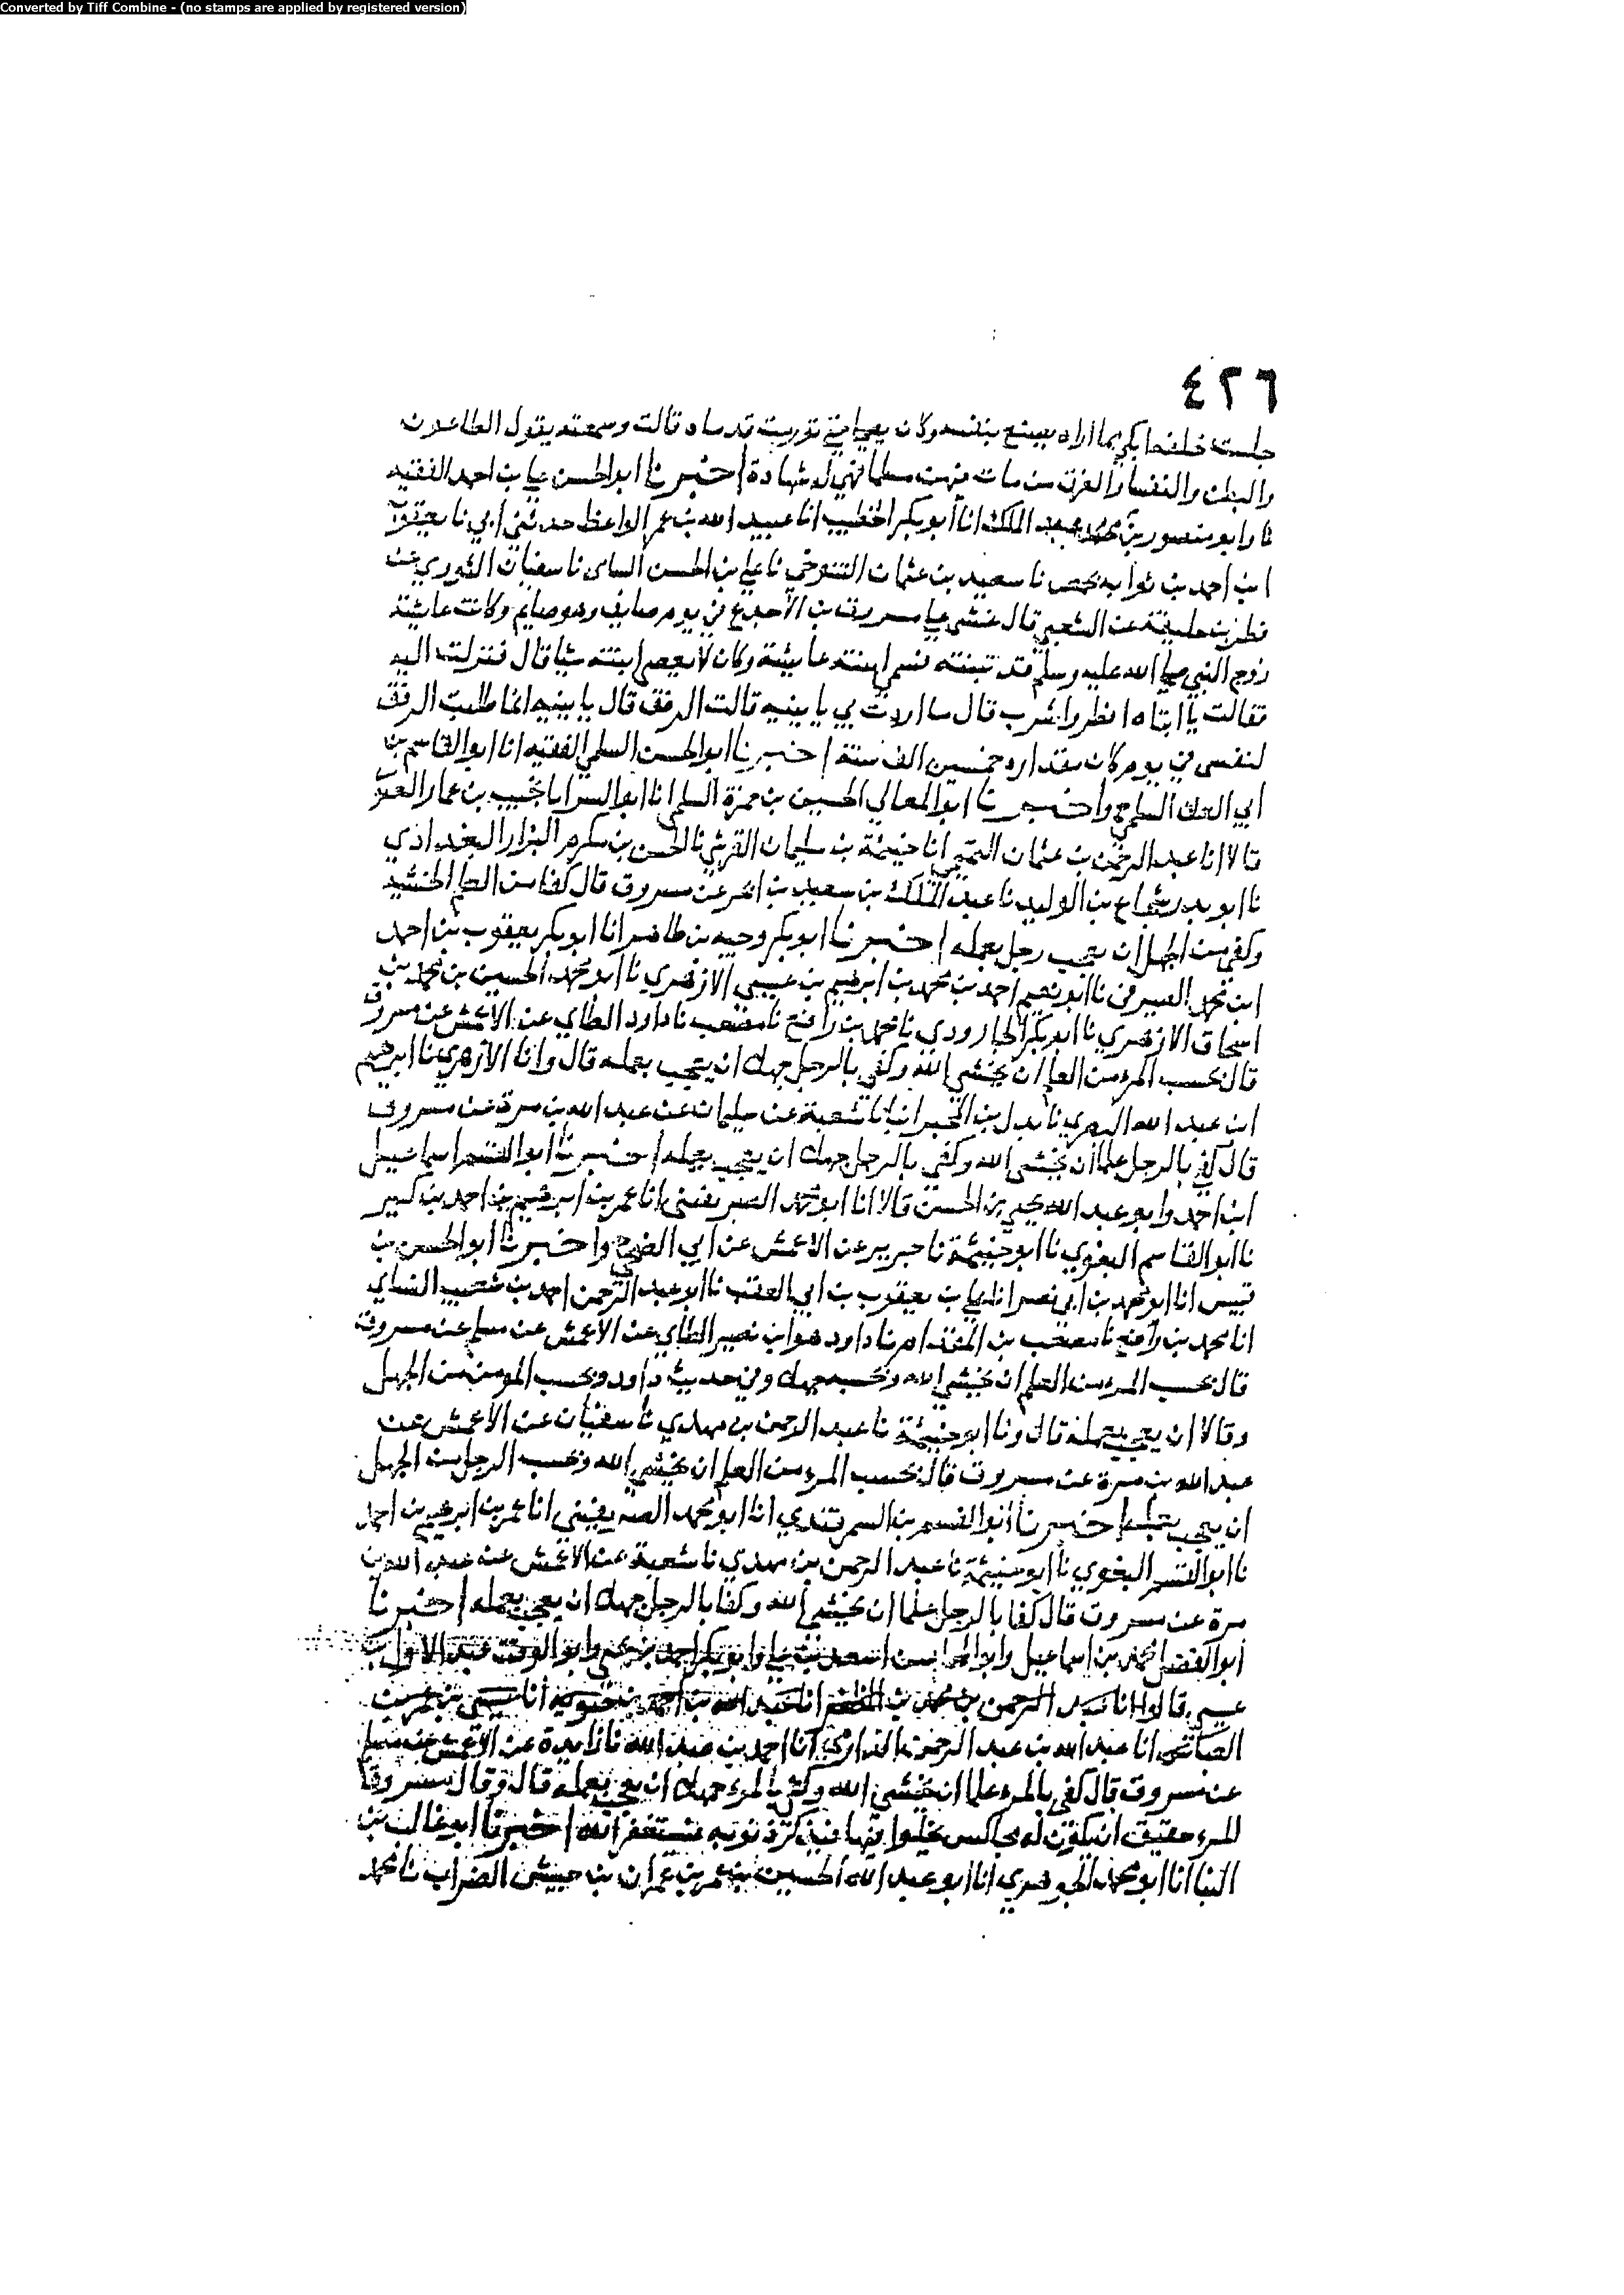 Converted by Tiff Combine - (no stamps are applied by registered version)
٤٢٦
جلست خلفه ابكي مما اراه يصنع بنفسه وكان يصلي حتى تورمت قدماه قالت وسمعته يقول الطاعون
والبطن والنفسا والغرق من مات فيهن مسلما فهي له شهادة اخبرنا ابو الحسن علي بن احمد الفقيه
نا وابو منصور بن عبد الملك انا ابو بكر الخطيب انا عبيد الله بن عمر الواعظ حدثني ابي نا يعقوب
ابن احمد بن ثوابه بحمص نا سعيد بن عثمان التنوخي نا علي بن الحسن السامي نا سفيان الثوري عن
فطر بن خليفة عن الشعبي قال غشي على مسروق بن الاجدع في يوم صايف وهو صايم وكانت عايشة
زوج النبي صلى الله عليه وسلم قد تبنته فسمى ابنته عايشة وكان لا يعصي ابنته شيا قال فنزلت اليه
فقالت يا ابتاه افطر واشرب قال ما اردت بي يا بنيه قالت الرفق قال يا بنيه انما طلبت الرفق
لنفسي في يوم كان مقداره خمسين الف سنة اخبرنا ابو الحسن السلمي الفقيه انا ابو القاسم بن
ابي العلا السلمي واخبرنا ابو المعالي الحسين بن حمزة السلمي انا ابو السرايا نجيب بن عمار الغنوي
قالا انا عبد الرحمن بن عثمان التميمي انا خيثمة بن سليمان القرشي نا الحسن بن مكرم البزار البغداذي
نا ابو بدر شجاع بن الوليد نا عبد الملك بن سعيد بن ابجر عن مسروق قال كفا من العلم الخشية
وكفى من الجهل ان يعجب رجل بعمله اخبرنا ابو بكر وجيه بن طاهر انا ابو بكر يعقوب بن احمد
ابن محمد الصيرفي نا ابو نعيم احمد بن محمد بن ابرهيم بن عيسى الازهري نا ابو محمد الحسين بن محمد بن
اسحاق الازهري نا ابو بكر الجارودي نا محمد بن رافع نا مصعب نا داود الطاي عن الاعمش عن مسروق
قال بحسب المرء من العلم ان يخشى الله وكفى بالرجل جهلا ان يعجب بعمله قال وانا الازهري نا ابرهيم
ابن عبد الله البصري نا بدل بن المحبر انبانا شعبة عن سليمان عن عبد الله بن مرة عن مسروق
قال كفى بالرجل علما ان يخشى الله وكفى بالرجل جهلا ان يعجب بعمله اخبرنا ابو القسم اسماعيل
ابن احمد وابو عبد الله يحيى بن الحسن قالا انا ابو محمد الصريفيني انا عمر بن ابرهيم بن احمد بن كثير
نا ابو القاسم البغوي نا ابو خيثمة نا جرير عن الاعمش عن ابي الضحى واخبرنا ابو الحسن بن
قبيس انا ابو محمد بن ابي نصر انا علي بن يعقوب بن ابي العقب نا ابو عبد الرحمن احمد بن شعيب النساي
انا محمد بن رافع نا مصعب بن المقدام نا داود هو ابن نصير الطاي عن الاعمش عن مسلم عن مسروق
قال بحسب المرء من العلم ان يخشى الله وبحسبه جهلا وفي حديث داود وبحسب المومن من الجهل
وقالا ان يعجب بعمله قال ونا ابو خيثمة نا عبد الرحمن بن مهدي نا سفيان عن الاعمش عن
عبد الله بن مرة عن مسروق قال بحسب المرء من العلم ان يخشى الله وبحسب الرجل من الجهل
ان يعجب بعمله اخبرنا ابو القسم بن السمرقندي انا ابو محمد الصريفيني انا عمر بن ابرهيم بن احمد
نا ابو القسم البغوي نا ابو خيثمة نا عبد الرحمن بن مهدي نا شعبة عن الاعمش عن عبد الله بن
مرة عن مسروق قال كفا بالرجل علما ان يخشى الله وكفا بالرجل جهلا ان يعجب بعمله اخبرنا
ابو الفضل محمد بن اسماعيل وابو المحاسن اسعد بن علي وابو بكر احمد بن يحيى وابو الوقت عبد الاول بن
عيسى قالوا انا عبد الرحمن بن محمد بن المظفر انا عبد الله بن احمد بن حمويه انا عيسى بن عمر بن
العباس انا عبد الله بن عبد الرحمن الدارمي انا احمد بن عبد الله نا زايدة عن الاعمش عن مسلم
عن مسروق قال كفى بالمرء علما ان يخشى الله وكفى بالمرء جهلا ان يعجب بعمله قال وقال مسروق
المرء حقيق ان يكون له مجالس يخلوا فيها فيذكر ذنوبه فيستغفر الله اخبرنا ابو غالب بن
البنا انا ابو محمد الجوهري انا ابو عبد الله الحسين بن عمر بن عمران بن حبيش الضراب نا محمد